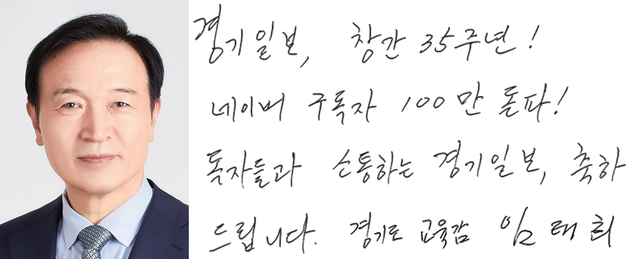 경기일보, 창간 35주년!
네이버 구독자 100만 돌파!
독자들과 소통하는 경기일보, 축하
드립니다. 경기도 교육감 임태희